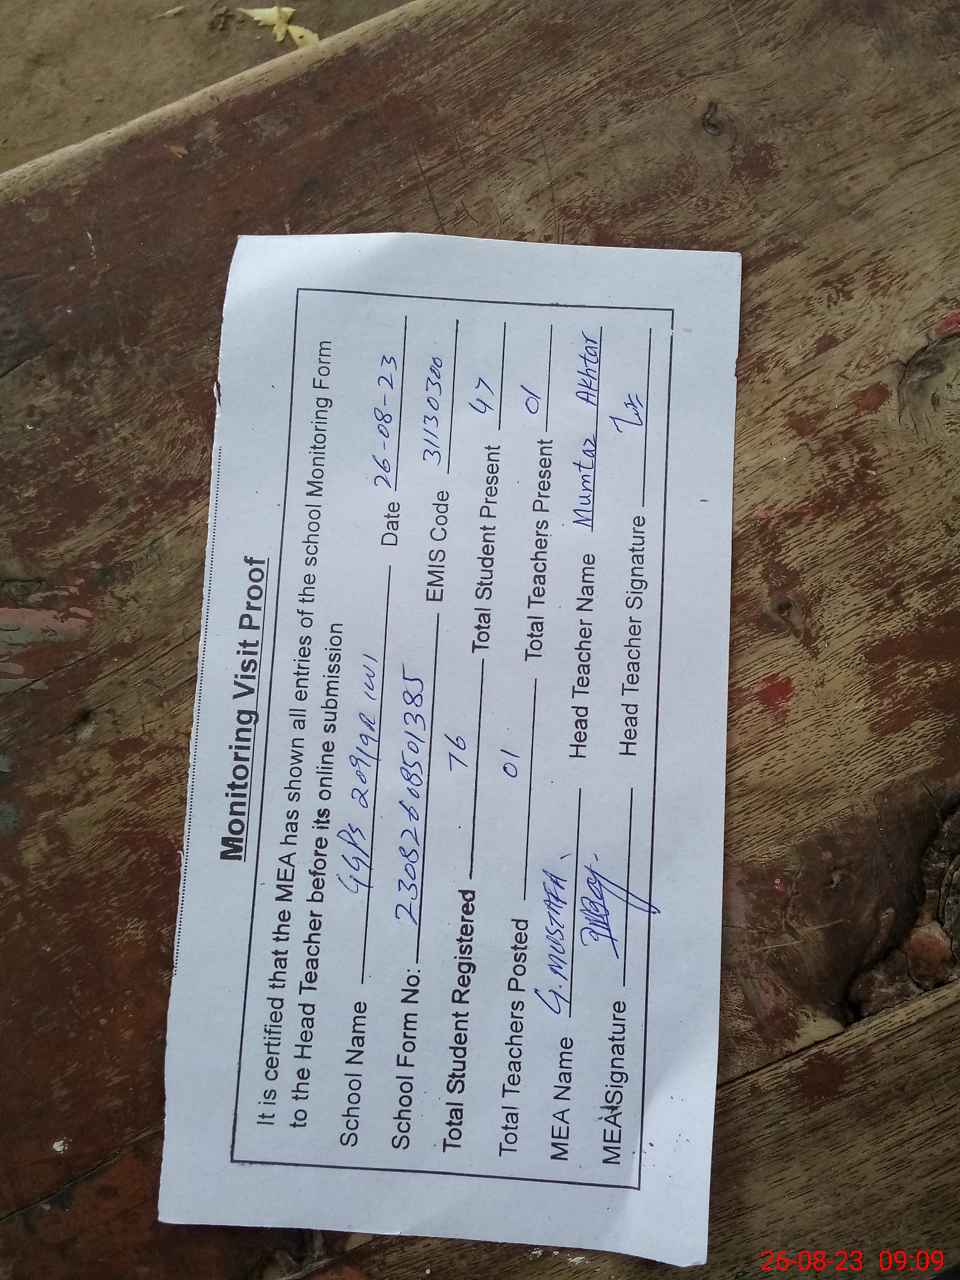 Monitoring Visit Proof
It is certified that the MEA has shown all entries of the school Monitoring Form
to the Head Teacher before its online submission
School Name GGPS 209/9R Date 26-08-23
School Form No: 23082608501385 EMIS Code 31130300
Total Student Registered 76 Total Student Present 47
Total Teachers Posted 01 Total Teachers Present 01
MEA Name G. MUSTAFA Head Teacher Name Mumtaz Akhtar
MEA Signature Head Teacher Signature
26-08-23 09:09